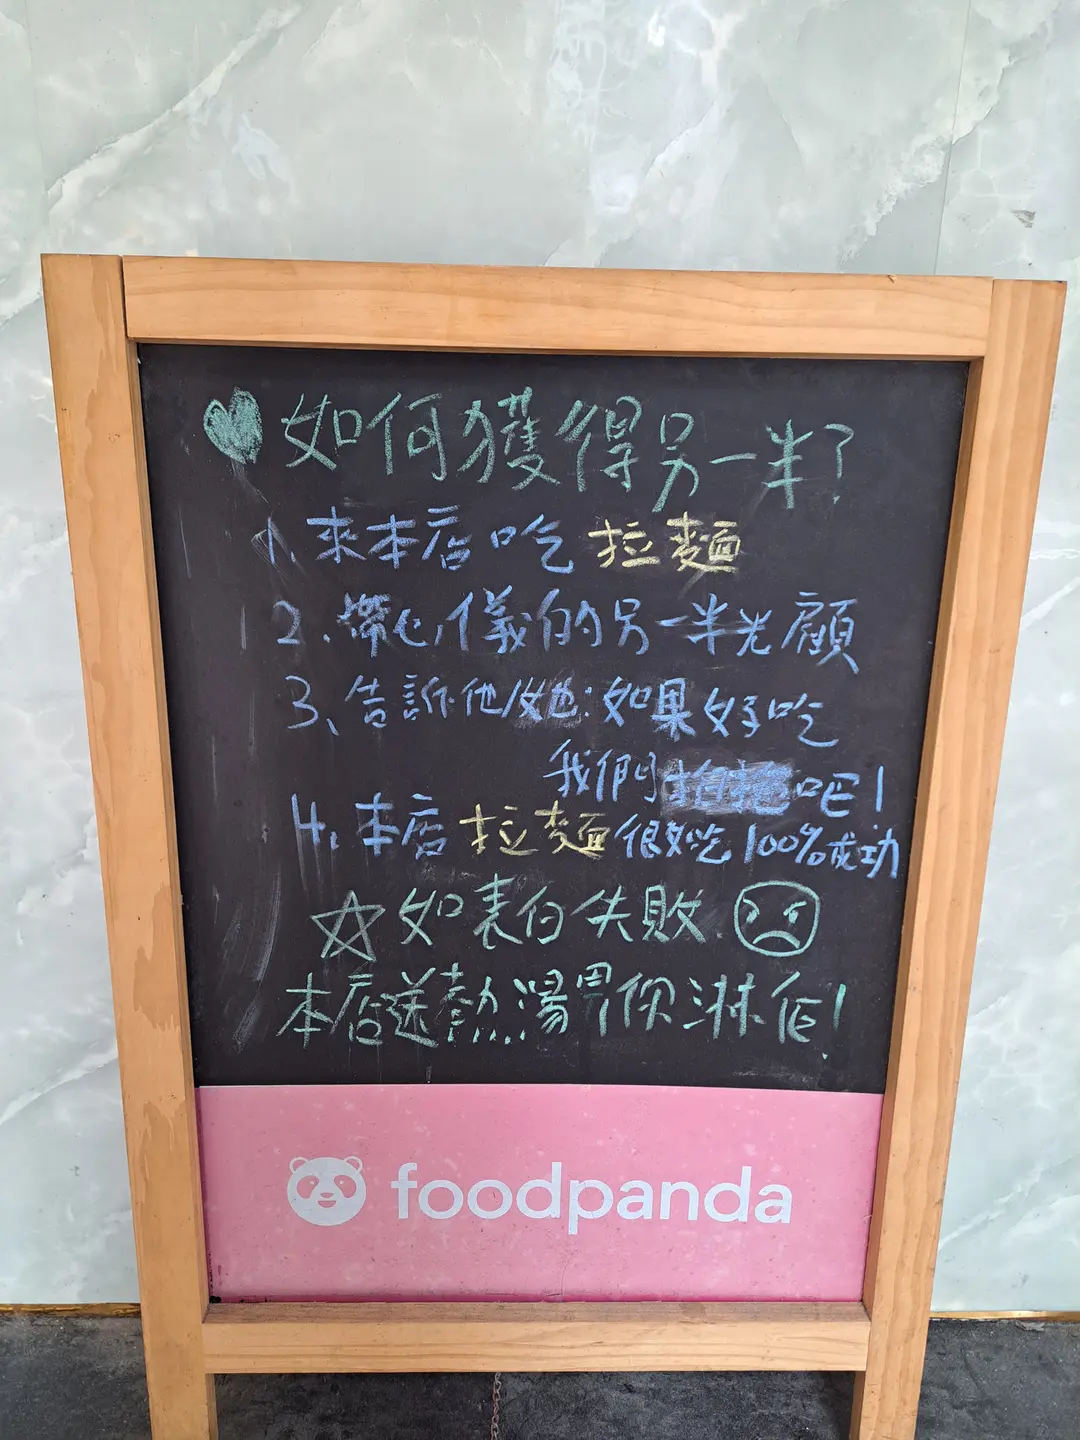 如何獲得另一半?
1、來本店吃 拉麵
2、帶心儀的另一半光顧
3、告訴他/她:如果好吃
我們 吧!
4、本店 拉麵 很好吃 100%成功
如表白失敗
本店送熱湯畀你淋佢!
foodpanda